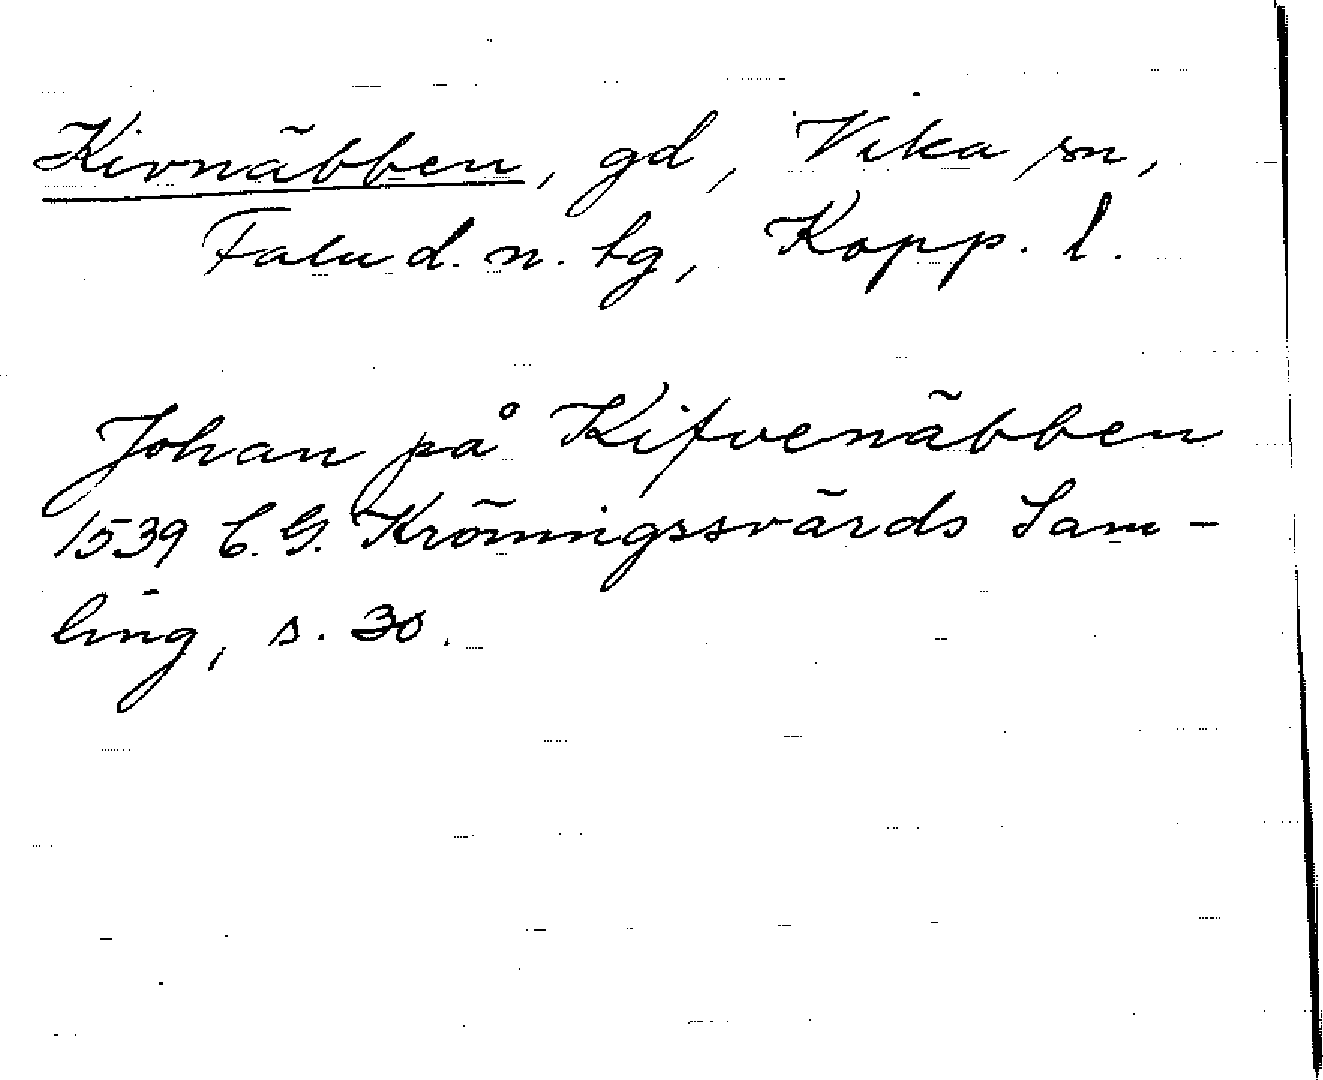 Kivnäbben, gd, Vika sn,
Falu d. n. tg, Kopp. l.
Johan på Kifvenäbben
1539 C. G. Kröningssvärds Sam-
ling, s. 30.